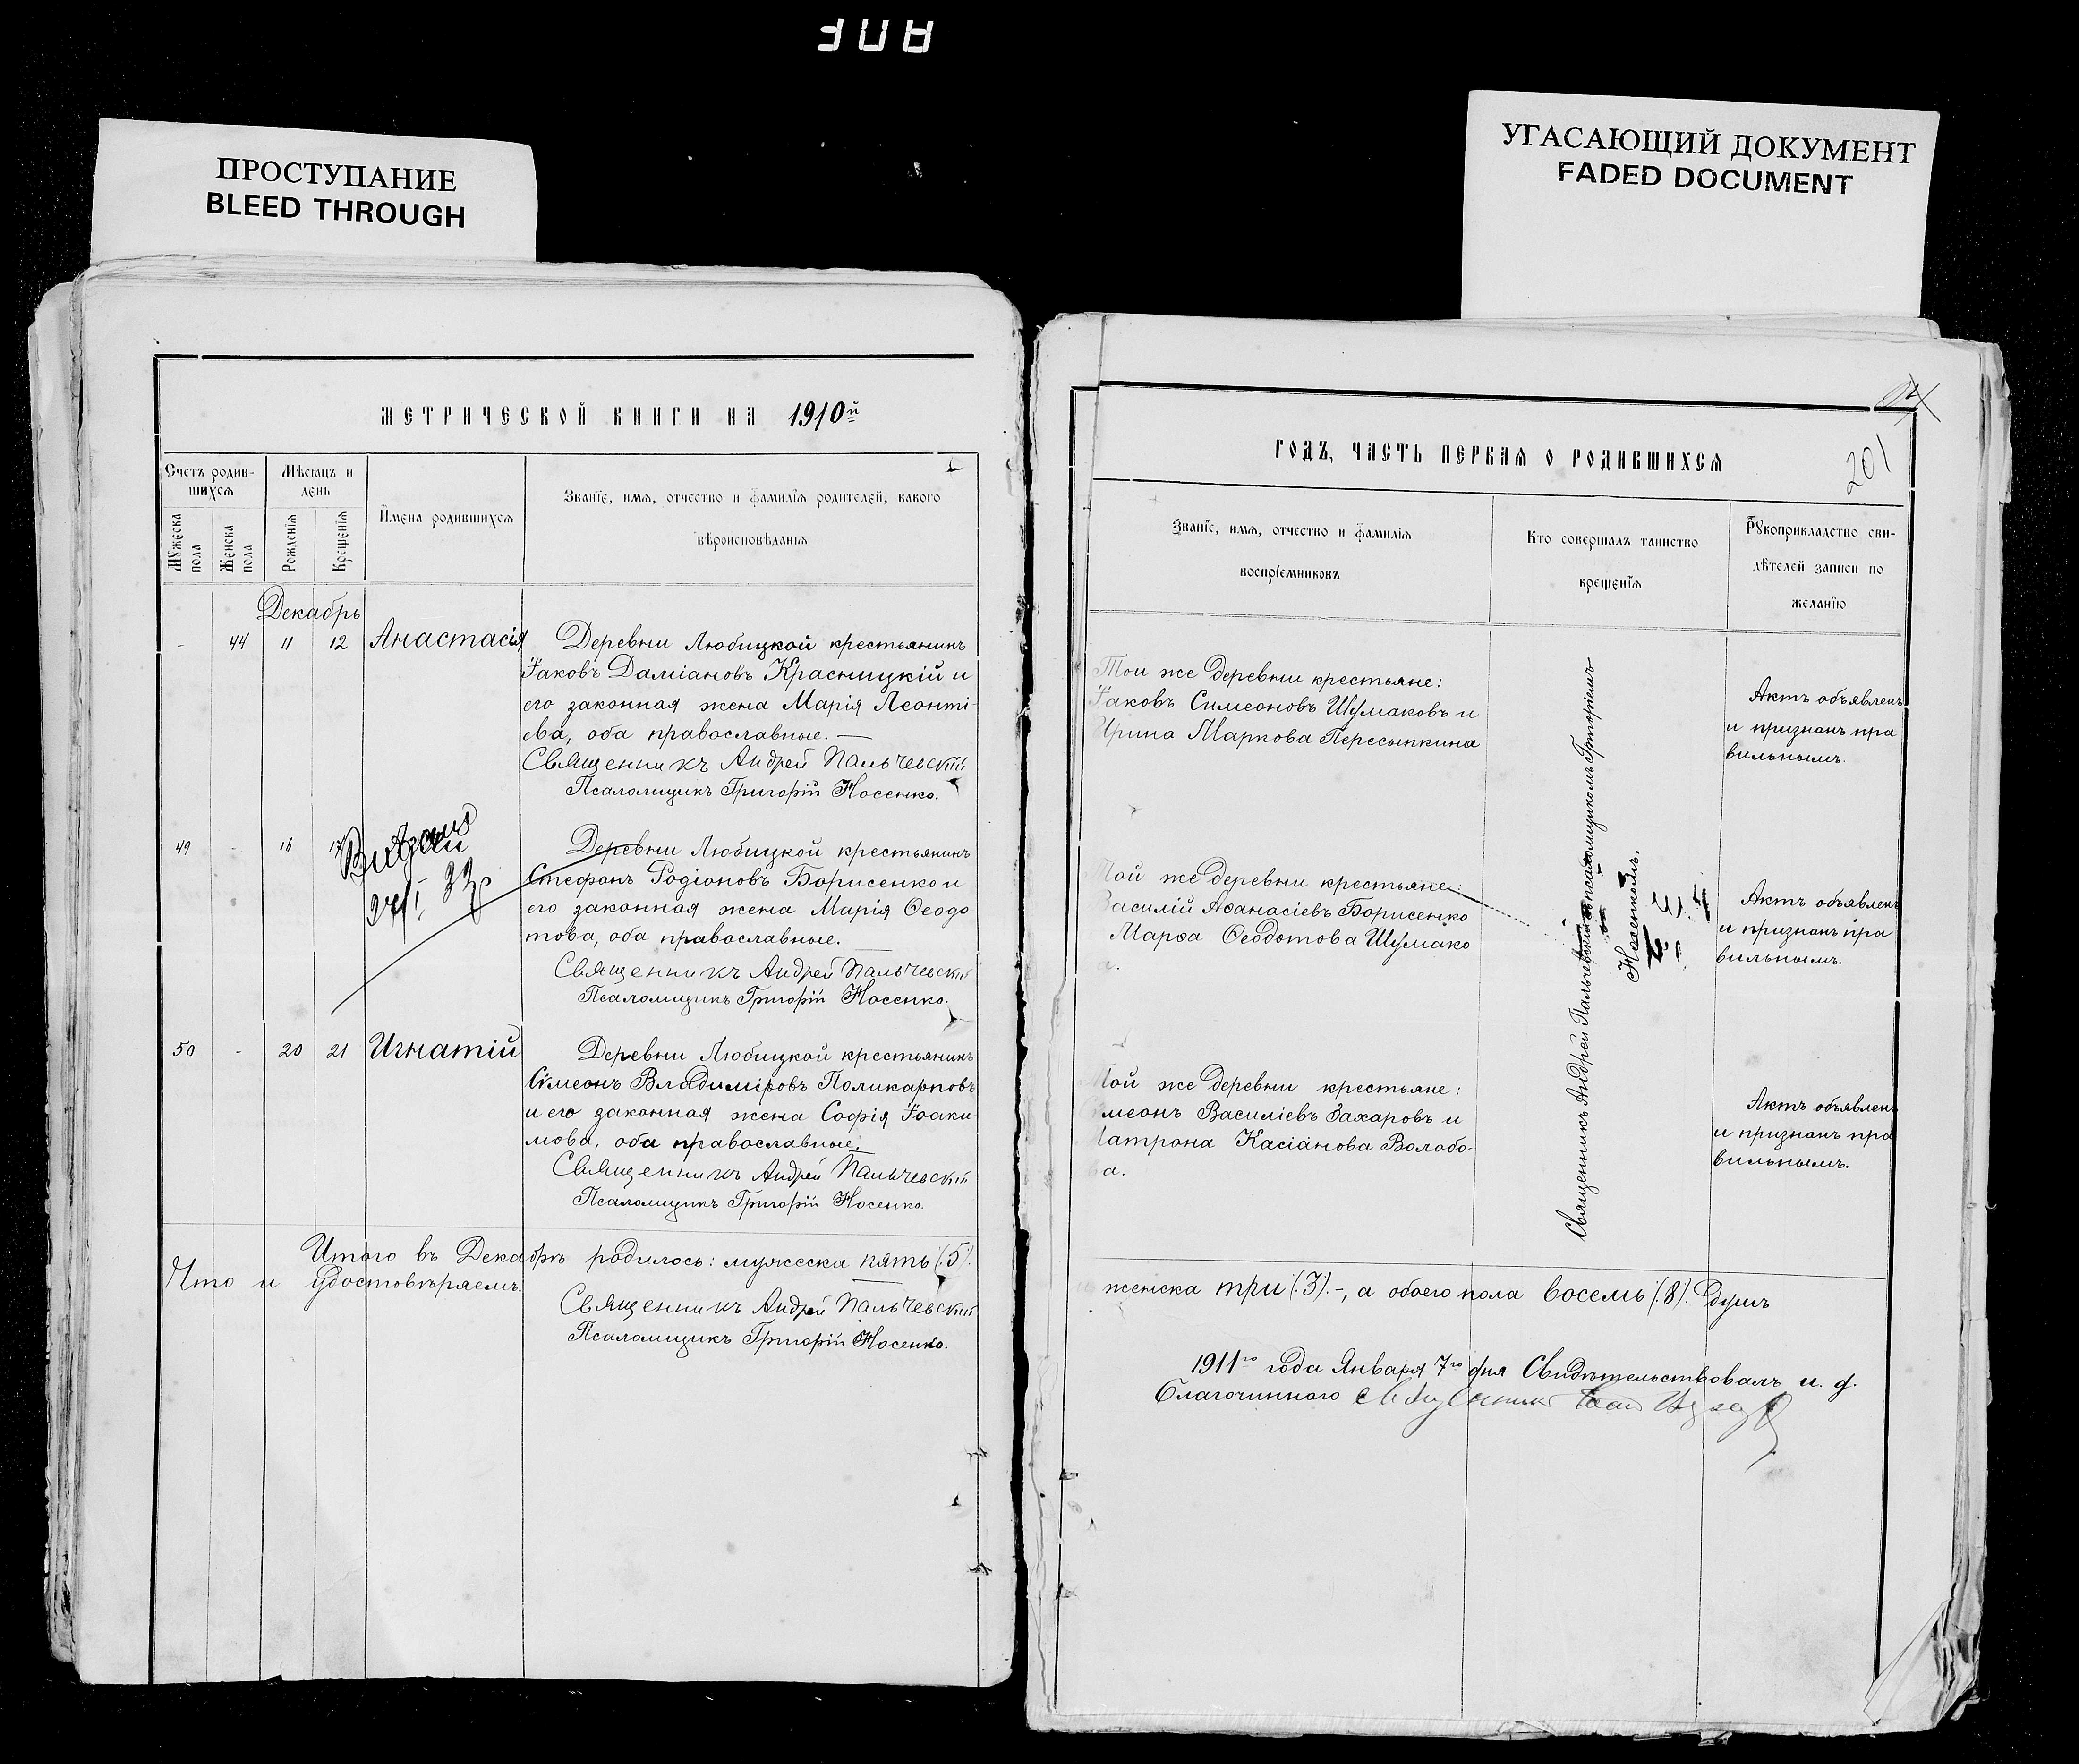 ПРОСТУПАНИЕ
BLEED THROUGH
УГАСАЮЩИЙ ДОКУМЕНТ
FADED DOCUMENT
МЕТРИЧЕСКОЙ КНИГИ НА 1910й
Счетъ родив-
шихся
Мѣсяцъ и
день
Мужеска пола
Женска пола
Рожденія
Крещенія
Имена родившихся
Званіе, имя, отчество и фамилія родителей, какого
вѣроисповѣданія
Декабрь
- 44 11 12 Анастасія
Деревни Любицкой крестьянинъ
Іаковъ Даміановъ Красницкій и
его законная жена Марія Леонті-
ева, оба православные. —
Священникъ Андрей Пальчевскій
Псаломщикъ Григорій Носенко.
49 - 16 17
Видано
Деревни Любицкой крестьянинъ
Стефанъ Родіоновъ Борисенко и
его законная жена Марія Ѳеодо
това, оба православные.
Священникъ Андрей Пальчевскій
Псаломщикъ Григорій Носенко.
50 - 20 21 Игнатій
Деревни Любицкой крестьянинъ
Сѵмеонъ Владиміровъ Поликарповъ
и его законная жена Софія Іоаки
мова, оба православные.
Священникъ Андрей Пальчевскій
Псаломщикъ Григорій Носенко.
Итого въ Декабрѣ родилось: мужеска пять (:5:)
Что и удостовѣряемъ.
Священникъ Андрей Пальчевскій
Псаломщикъ Григорій Носенко.
201
ГОДЪ, ЧАСТЬ ПЕРВАЯ О РОДИВШИХСЯ
Званіе, имя, отчество и фамилія
воспріемниковъ
Кто совершалъ таинство
крещенія
Рукоприкладство сви-
дѣтелей записи по
желанію
Той же деревни крестьяне:
Іаковъ Симеоновъ Шумаковъ и
Ирина Маркова Пересыпкина
Актъ объявленъ
и признанъ пра
вильнымъ.
Той же деревни крестьяне:
Василій Аѳанасіевъ Борисенко
Марѳа Ѳеодотова Шумако
а.
Актъ объявленъ
и признанъ пра
вильнымъ.
Той же деревни крестьяне:
меонъ Василіевъ Захаровъ и
атрона Касіанова Волобо-
а.
Актъ объявленъ
и признанъ пра
вильнымъ.
Священникъ Андрей Пальчевскій съ псаломщикомъ Григоріемъ
Носенкомъ.
женска три (:3:) -, а обоего пола восемь (:8:) душъ
1911го года Января 7го дня Свидѣтельствовалъ и. д.
Благочиннаго